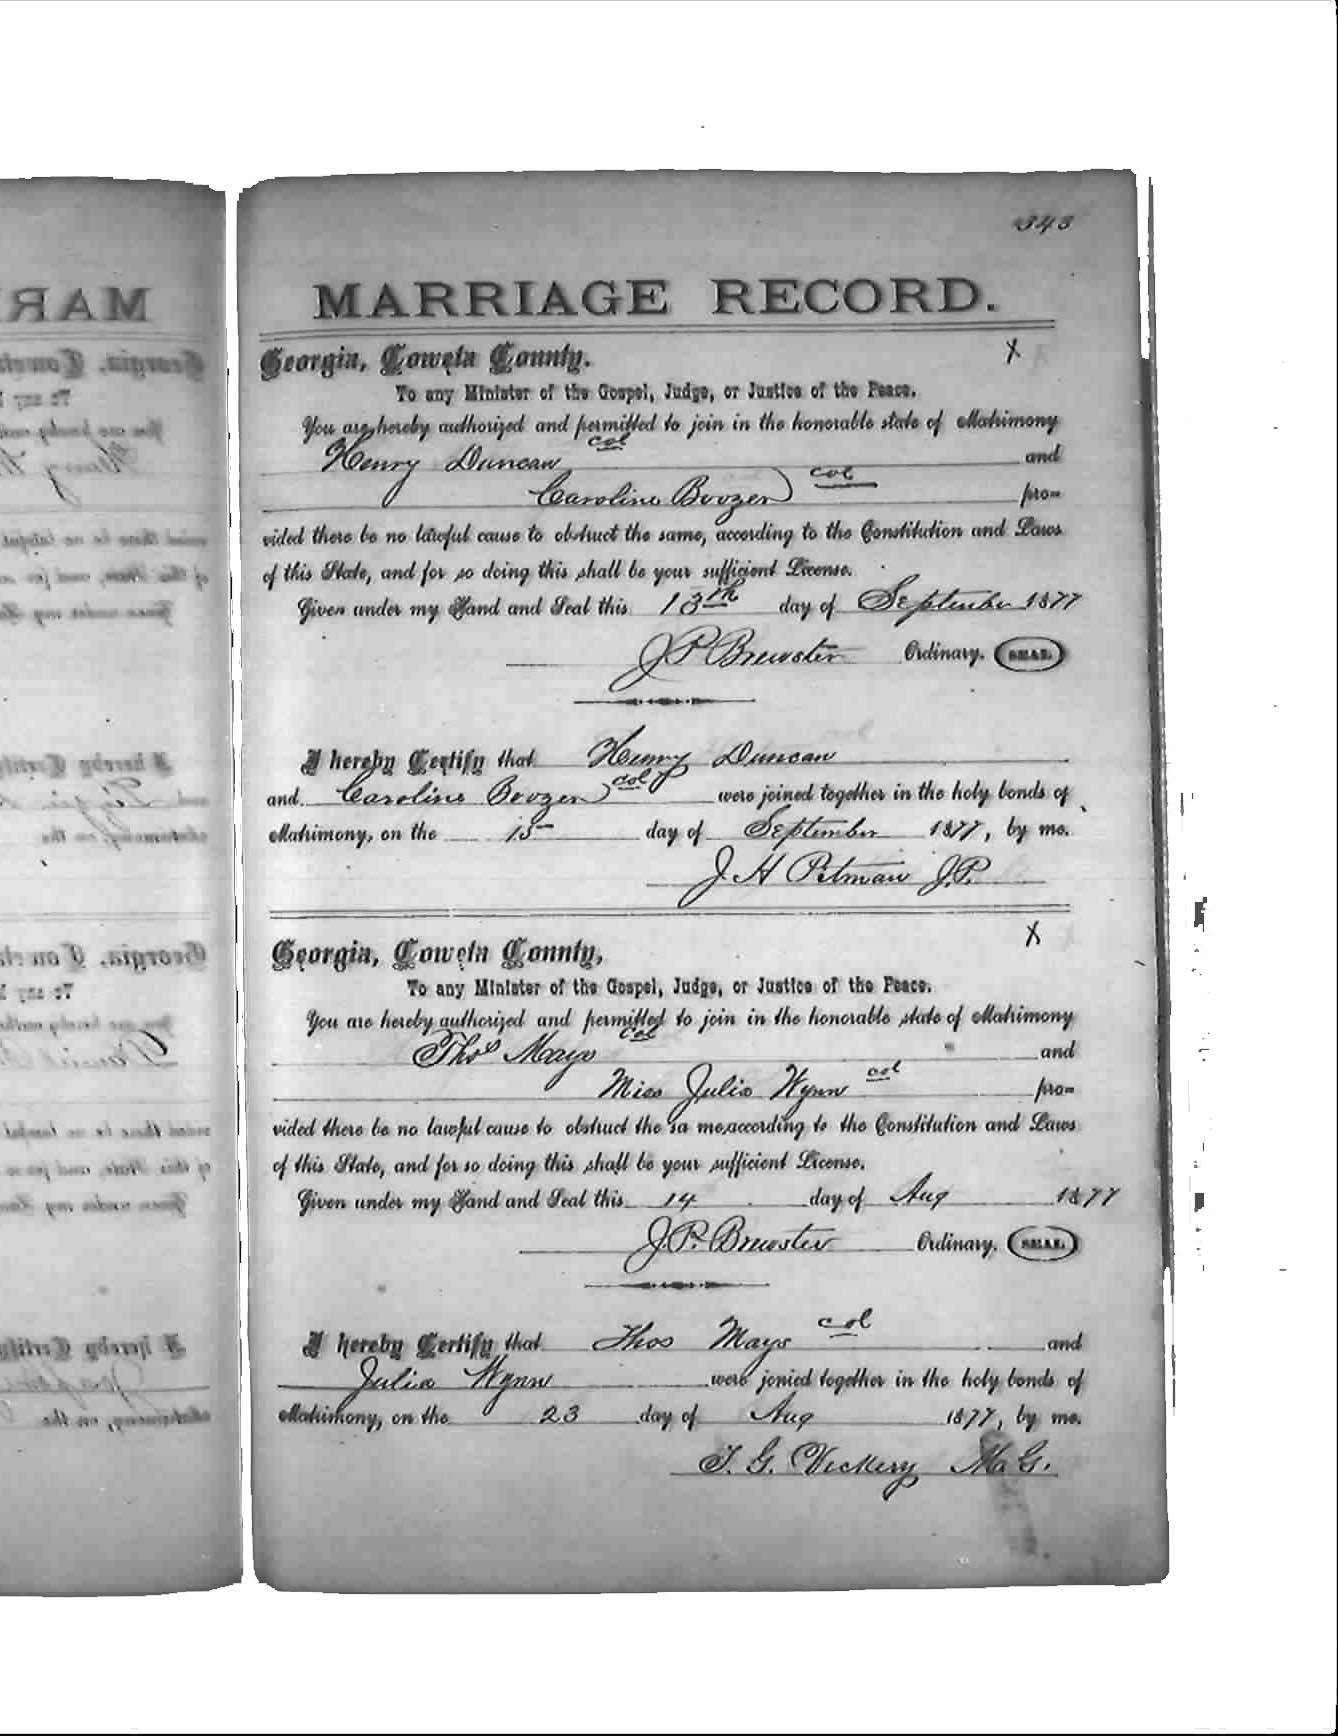 343
MARRIAGE RECORD.
Georgia, Coweta County. X
To any Minister of the Gospel, Judge, or Justice of the Peace.
You are hereby authorized and permitted to join in the honorable state of Matrimony
Henry Duncan col and
Caroline Boozer col pro=
vided there be no lawful cause to obstruct the same, according to the Constitution and Laws
of this State, and for so doing this shall be your sufficient License.
Given under my Hand and Seal this 13th day of September 1877
J P Brewster Ordinary. SEAL.
I hereby Certify that Henry Duncan
and Caroline Boozer col were joined together in the holy bonds of
Matrimony, on the 15 day of September 1877, by me.
J. H Pitman J.P.
Georgia, Coweta County, X
To any Minister of the Gospel, Judge, or Justice of the Peace.
You are hereby authorized and permitted to join in the honorable state of Matrimony
Thos Mays col and
Miss Julia Wynn col pro=
vided there be no lawful cause to obstruct the sa me, according to the Constitution and Laws
of this State, and for so doing this shall be your sufficient License.
Given under my Hand and Seal this 14 day of Aug 1877
J. P. Brewster Ordinary. SEAL.
I hereby Certify that Thos Mays col and
Julia Wynn were jonied together in the holy bonds of
Matrimony, on the 23 day of Aug 1877, by me.
T. G. Vickery M.G.